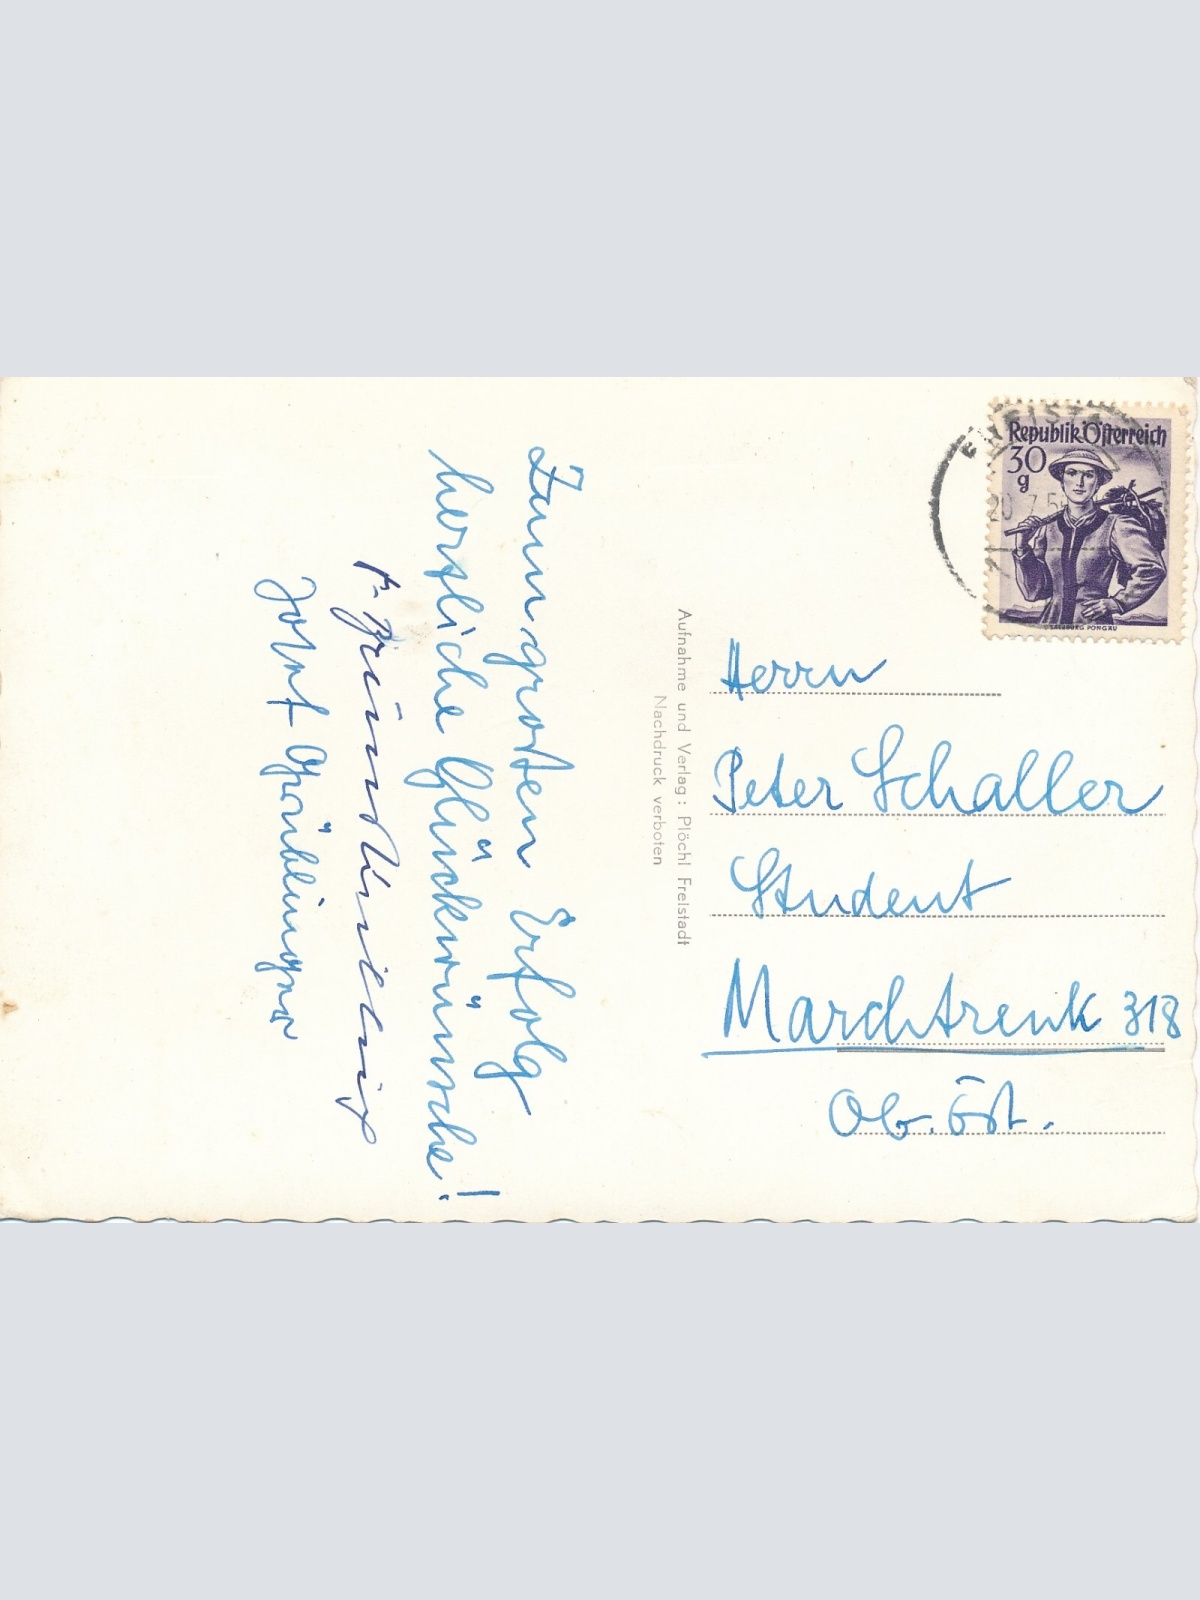 Zum großen Erfolg
herzliche Glückwünsche!
Josef
Aufnahme und Verlag: Plöchl Freistadt
Nachdruck verboten
Republik Österreich
30
g
SALZBURG, PONGAU
20. 7. 5
Herrn
Peter Schaller
Student
Marchtrenk 318
Ob. Öst.